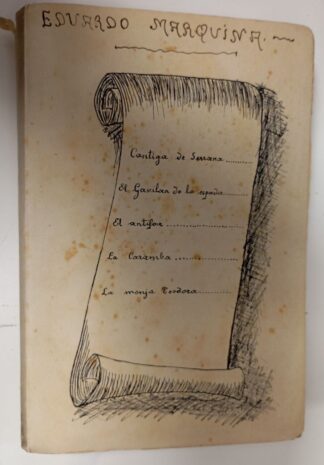 EDUARDO MARQUINA.
Cantiga de Serrana
El Gavilan de la espada
El antifaz
La Caramba
La monja Teodora